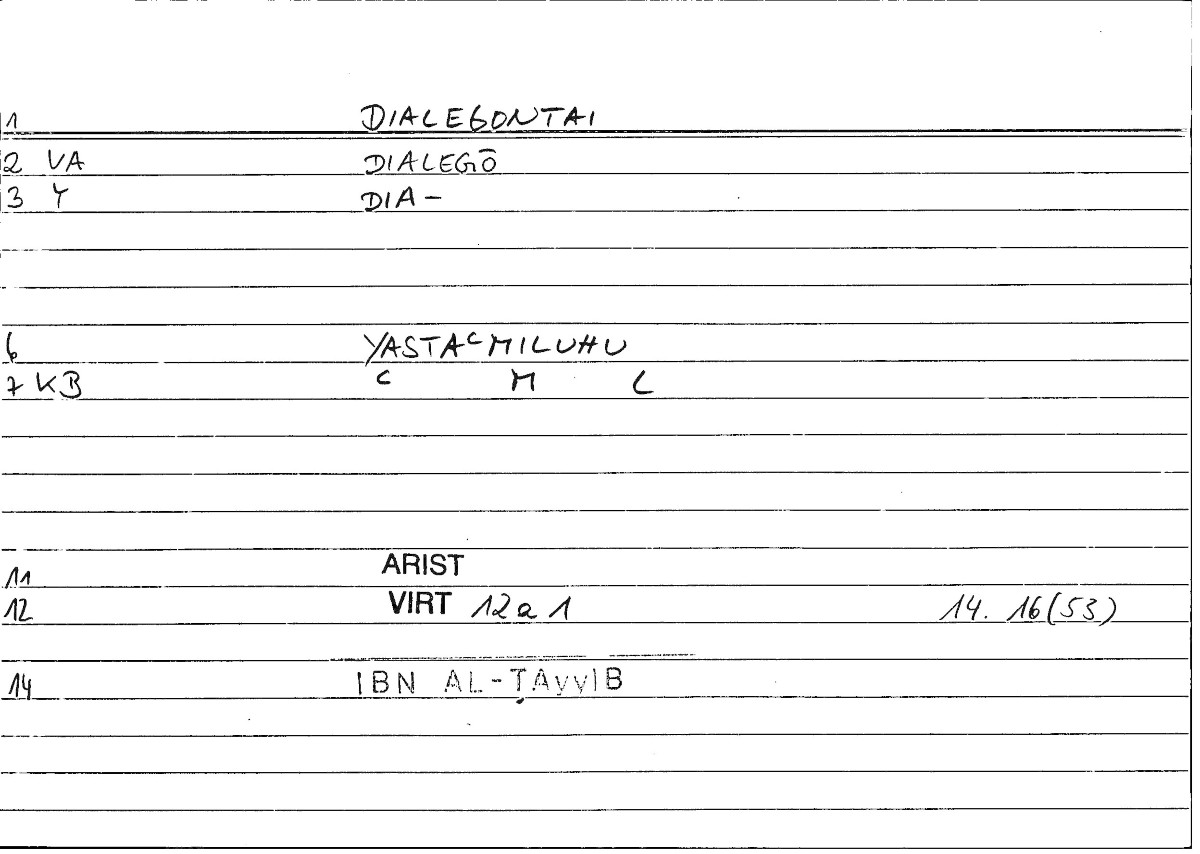 1 DIALEGONTAI
2 VA DIALEGŌ
3 Y DIA-
6 YASTAᶜMILUHU
7 KB ᶜ M L
11 ARIST
12 VIRT 12a1 14. 16(53)
14 IBN AL-ṬAyyIB